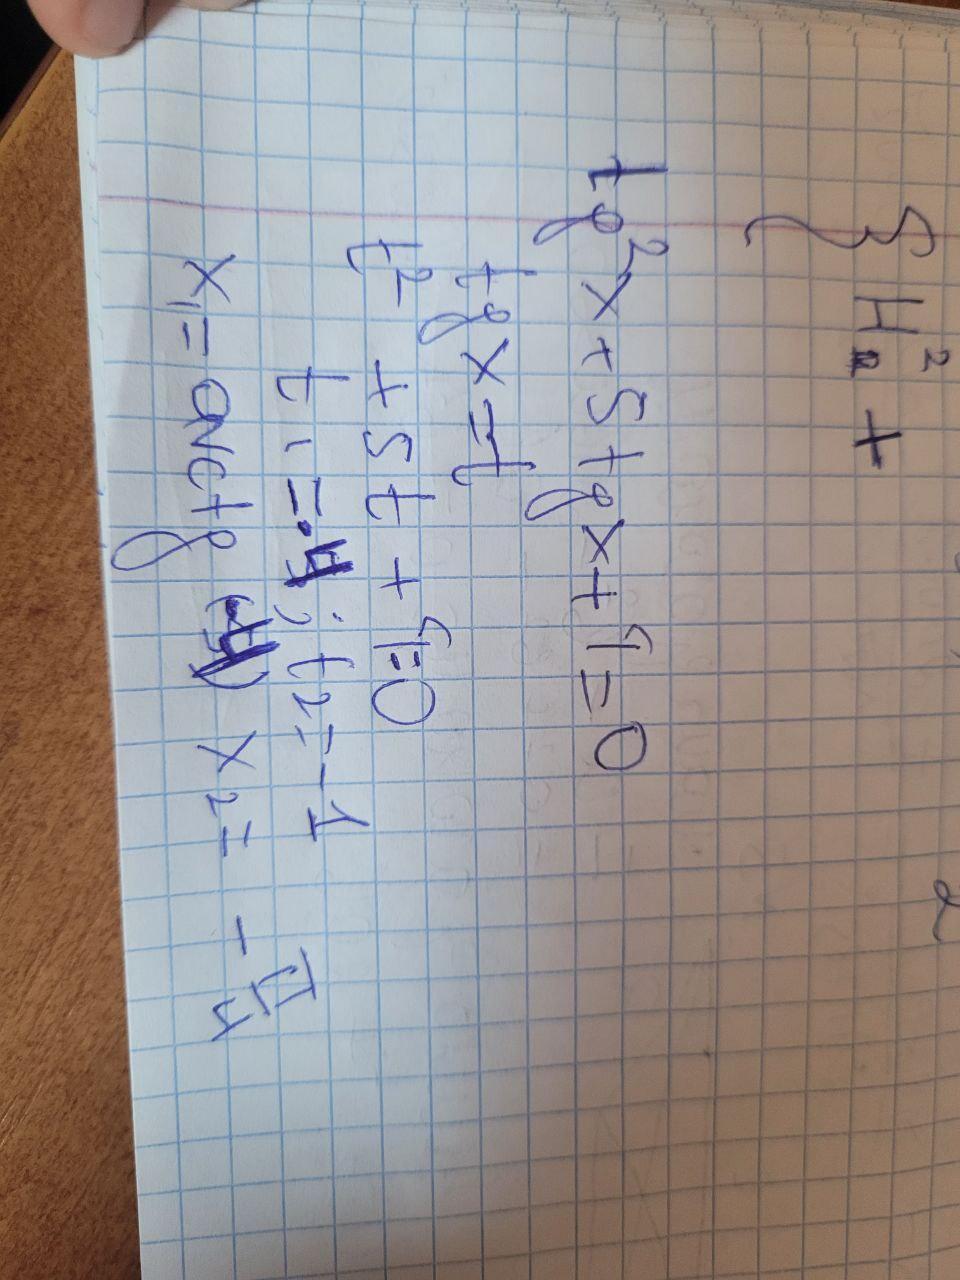 H² +
2
tg²x + 5tgx + 4 = 0
tgx = t
t² + 5t + 4 = 0
t₁ = -4; t₂ = -1
x₁ = arctg (-4) x₂ = -π/4